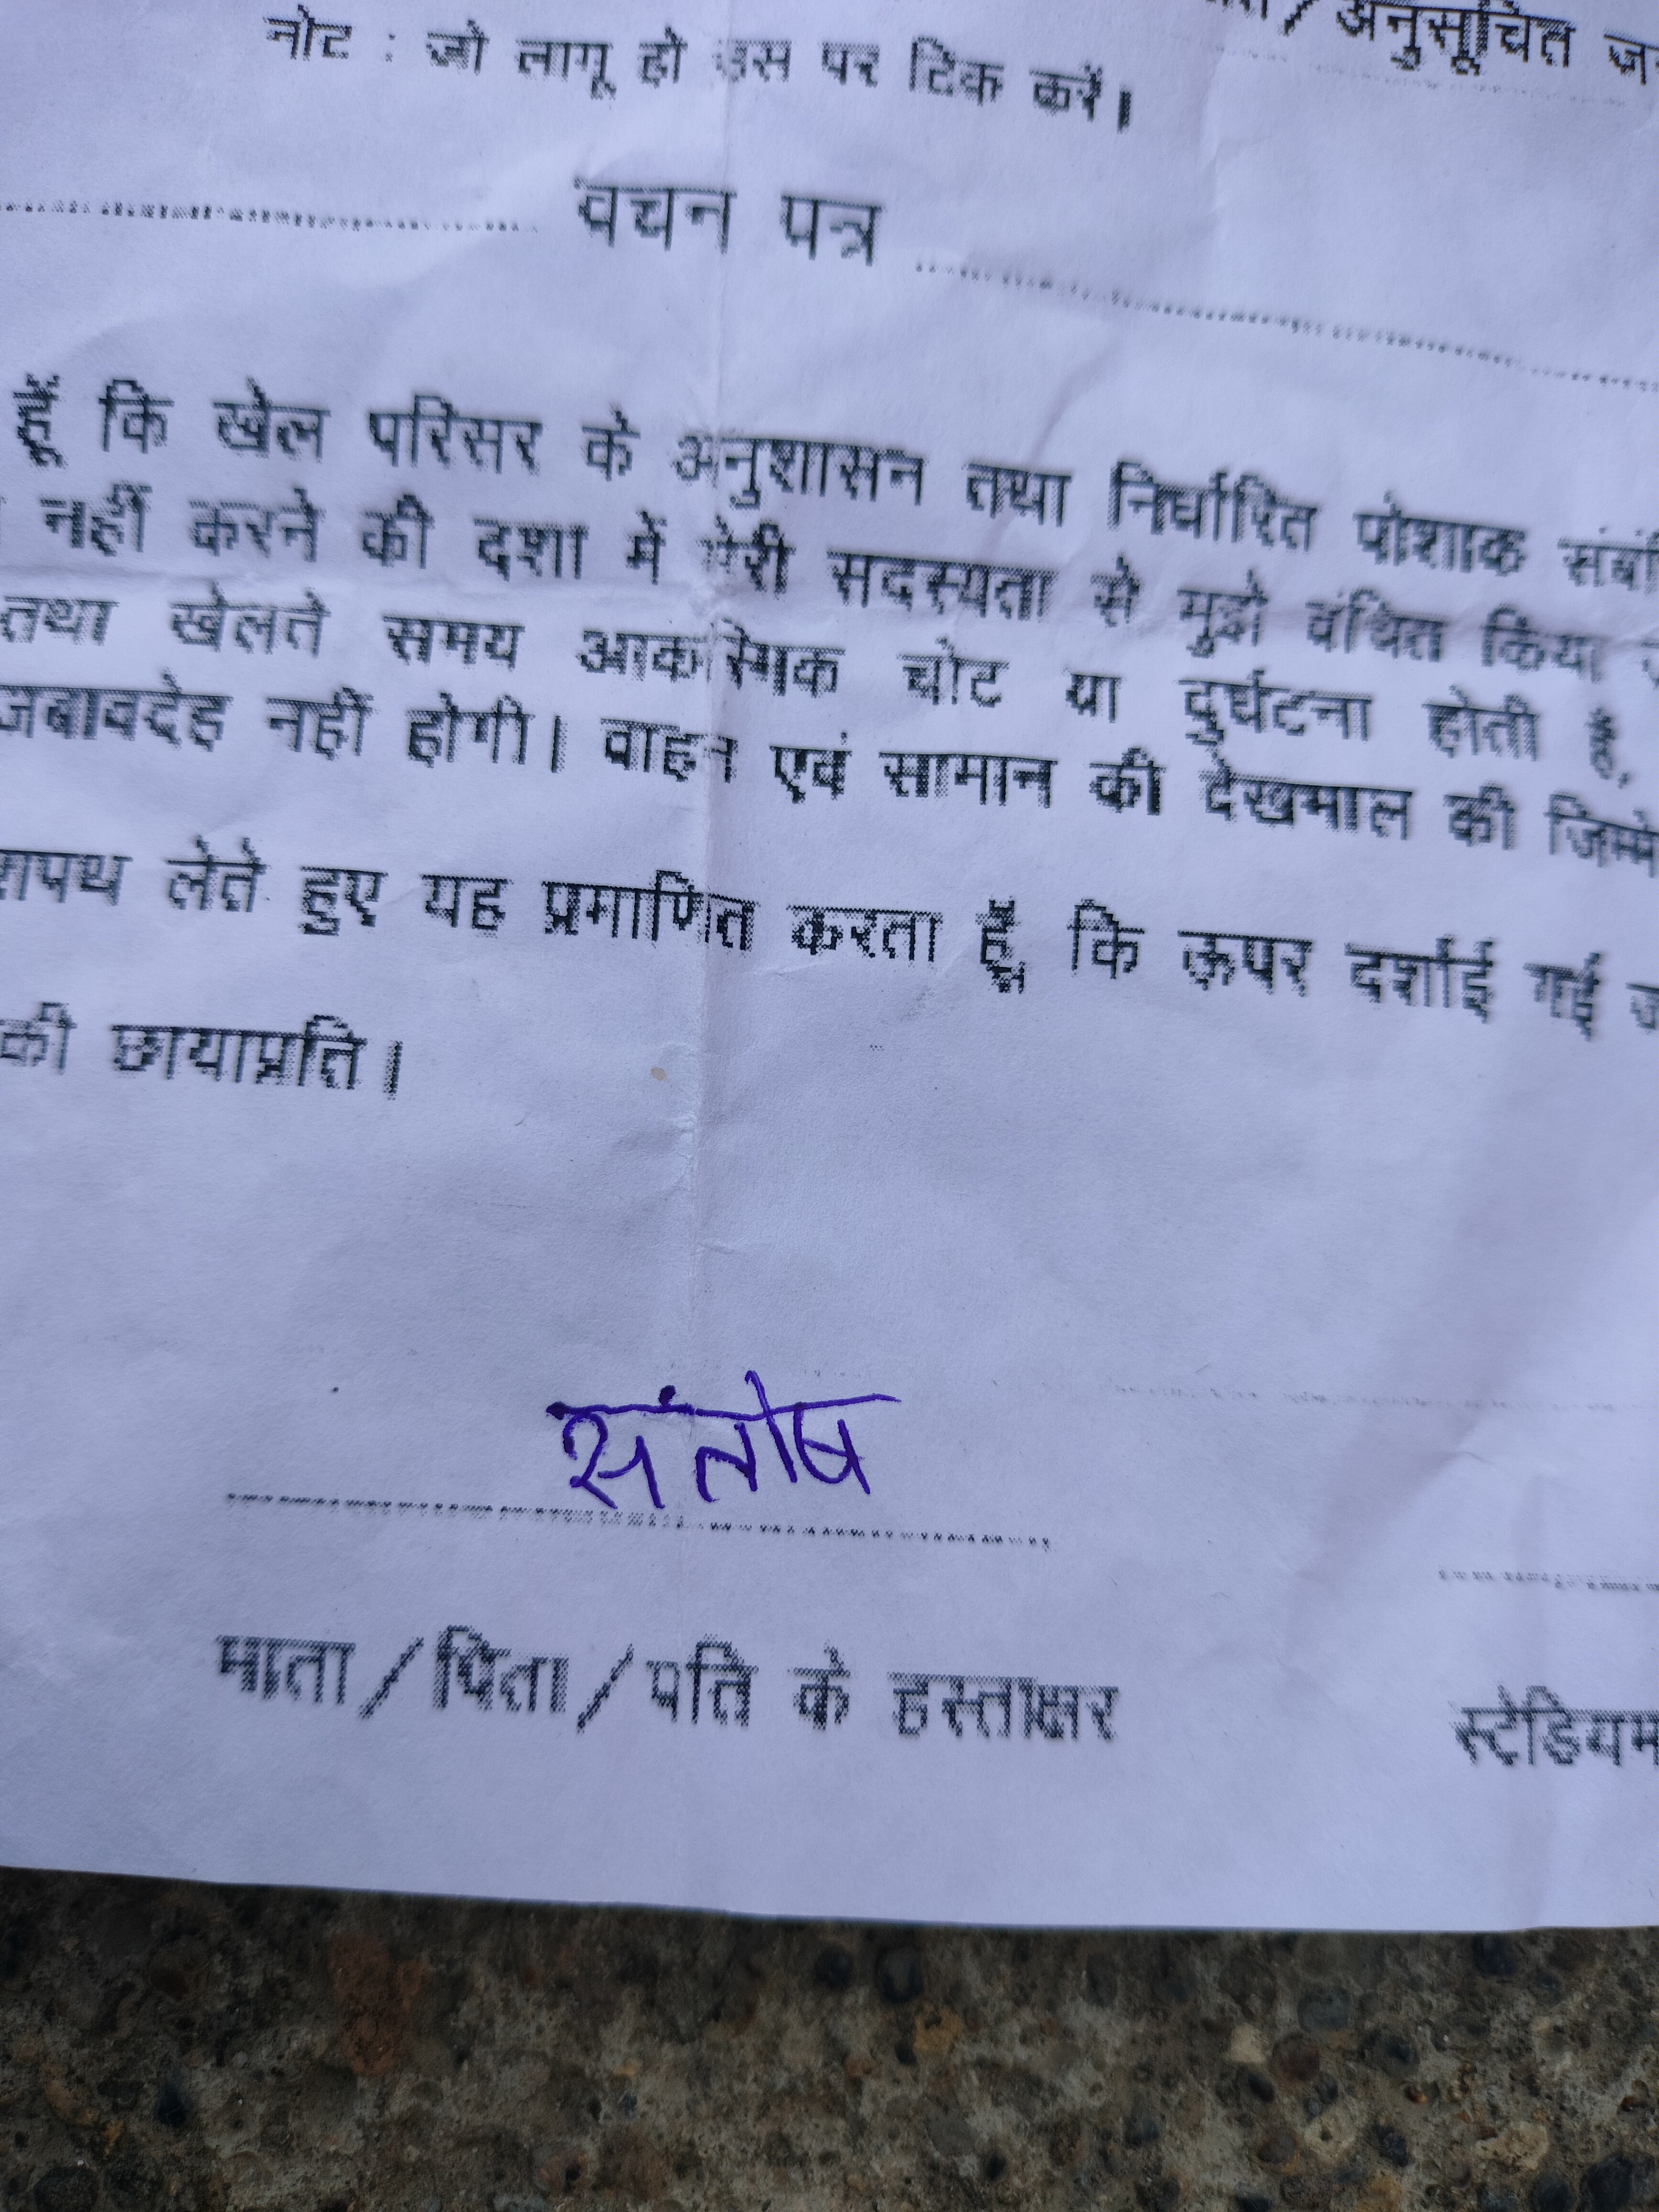 अनुसूचित
नोट : जो लागू हो उस पर टिक करें।
वचन पत्र
हूँ कि खेल परिसर के अनुशासन तथा निर्धारित पोशाक
नहीं करने की दशा में मेरी सदस्यता से मुझे वंचित किया
तथा खेलते समय आकस्मिक चोट या दुर्घटना होती है,
जबावदेह नहीं होगी। वाहन एवं सामान की देखभाल की
शपथ लेते हुए यह प्रमाणित करता हूँ कि ऊपर दर्शाई गई
की छायाप्रति।
संतोष
माता/पिता/पति के हस्ताक्षर
स्टेडियम